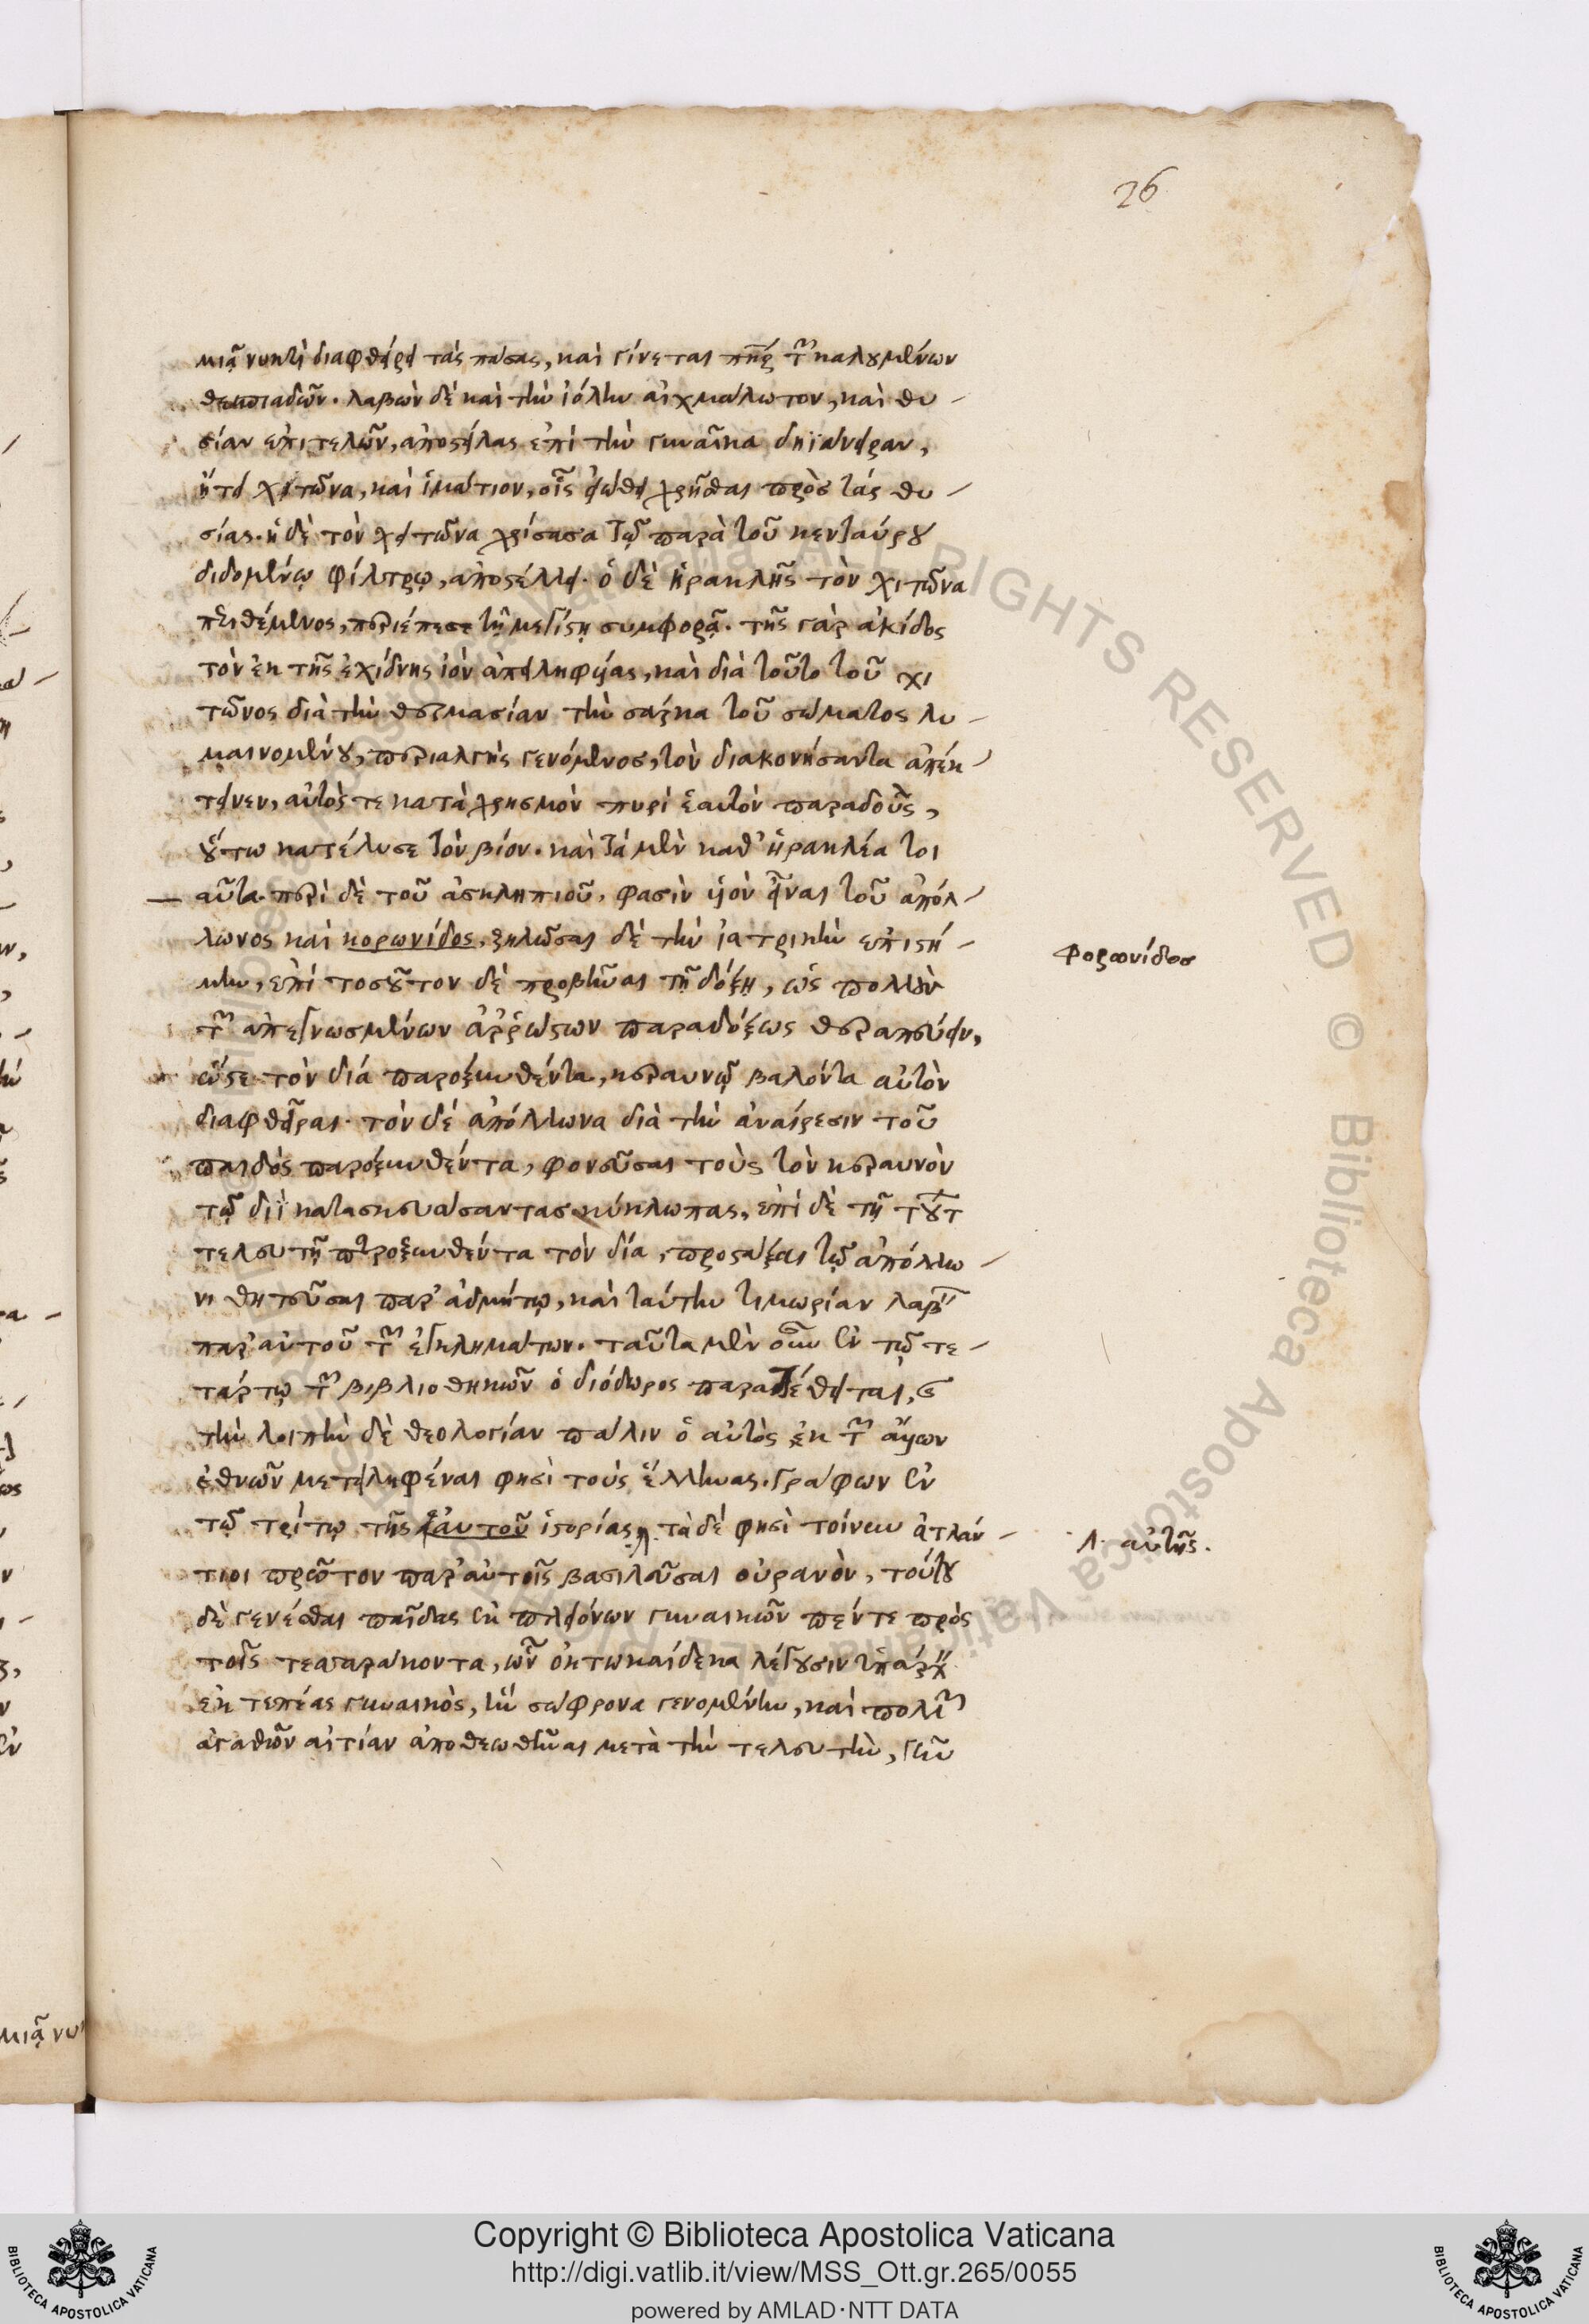 26
μιᾷ νυκτὶ διαφθείρει τὰς πάσας, καὶ γίνεται πατὴρ τῶν καλουμένων
θεσπιαδῶν. λαβὼν δὲ καὶ τὴν ἰόλην αἰχμάλωτον, καὶ θυ-
σίαν ἐπιτελῶν, ἀποστείλας ἐπὶ τὴν γυναῖκα δηϊάνειραν,
ᾔτει χιτῶνα, καὶ ἱμάτιον, οἷς εἰώθει χρῆσθαι πρὸς τὰς θυ-
σίας. ἡ δὲ τὸν χιτῶνα χρίσασα τῷ παρὰ τοῦ κενταύρου
διδομένῳ φίλτρῳ, ἀποστέλλει. ὁ δὲ ἡρακλῆς τὸν χιτῶνα
περιθέμενος, περιέπεσε τῇ μεγίστῃ συμφορᾷ. τῆς γὰρ ἀκίδος
τὸν ἐκ τῆς ἐχίδνης ἰὸν ἀπειληφυίας, καὶ διὰ τοῦτο τοῦ χι
τῶνος διὰ τὴν θερμασίαν τὴν σάρκα τοῦ σώματος λυ-
μαινομένου, περιαλγὴς γενόμενος, τὸν διακονήσαντα ἀπέκ-
τεινεν, αὐτός τε κατὰ χρησμὸν πυρὶ ἑαυτὸν παραδοὺς,
οὕτω κατέλυσε τὸν βίον. καὶ τὰ μὲν καθ' ἡρακλέα τοι
αῦτα. περὶ δὲ τοῦ ἀσκληπιοῦ, φασὶν υἱὸν εἶναι τοῦ ἀπόλ-
λωνος καὶ κορωνίδος, ζηλῶσαι δὲ τὴν ἰατρικὴν ἐπιστή-
φορωνίδος
μην, ἐπὶ τοσοῦτον δὲ προβῆναι τῇ δόξῃ, ὡς πολλοὺς
τῶν ἀπεγνωσμένων ἀῤῥώστων παραδόξως θεραπεύειν,
ὥστε τὸν δία παροξυνθέντα, κεραυνῷ βαλόντα αὐτὸν
διαφθεῖραι. τὸν δὲ ἀπόλλωνα διὰ τὴν ἀναίρεσιν τοῦ
παιδὸς παροξυνθέντα, φονεῦσαι τοὺς τὸν κεραυνὸν
τῷ διῒ κατασκευάσαντας κύκλωπας, ἐπὶ δὲ τῇ τούτων
τελευτῇ παροξυνθέντα τὸν δία, προστάξαι τῷ ἀπόλλω-
νι θητεῦσαι παρ' ἀδμήτῳ, καὶ ταύτην τιμωρίαν λαβεῖν
παρ' αὐτοῦ τῶν ἐγκλημάτων. ταῦτα μὲν οὖν ἐν τῷ τε-
τάρτῳ τῶν βιβλιοθηκῶν ὁ διόδωρος παρατέθειται,
τὴν λοιπὴν δὲ θεολογίαν πάλιν ὁ αὐτὸς ἐκ τῶν ἄλλων
ἐθνῶν μετειληφέναι φησὶ τοὺς ἕλληνας. γράφων ἐν
τῷ τρίτῳ τῆς ἑαυτοῦ ἱστορίας, τὰ δέ φησὶ τοίνυν ἀτλάν-
λ. αὐτῆς.
τιοι πρῶτον παρ' αὐτοῖς βασιλεῦσαι οὐρανὸν, τούτου
δὲ γενέσθαι παῖδας ἐκ πλειόνων γυναικῶν πέντε πρὸς
τοῖς τεσσαράκοντα, ὧν ὀκτωκαίδεκα λέγουσιν ὑπάρχειν
ἐκ τεπέας γυναικὸς, ἣν σώφρονα γενομένην, καὶ πολλῶν
ἀγαθῶν αἰτίαν ἀποθεωθῆναι μετὰ τὴν τελευτὴν, γῆν
μιᾷ νυ
BIBLIOTECA APOSTOLICA VATICANA
Copyright © Biblioteca Apostolica Vaticana
http://digi.vatlib.it/view/MSS_Ott.gr.265/0055
powered by AMLAD·NTT DATA
BIBLIOTECA APOSTOLICA VATICANA